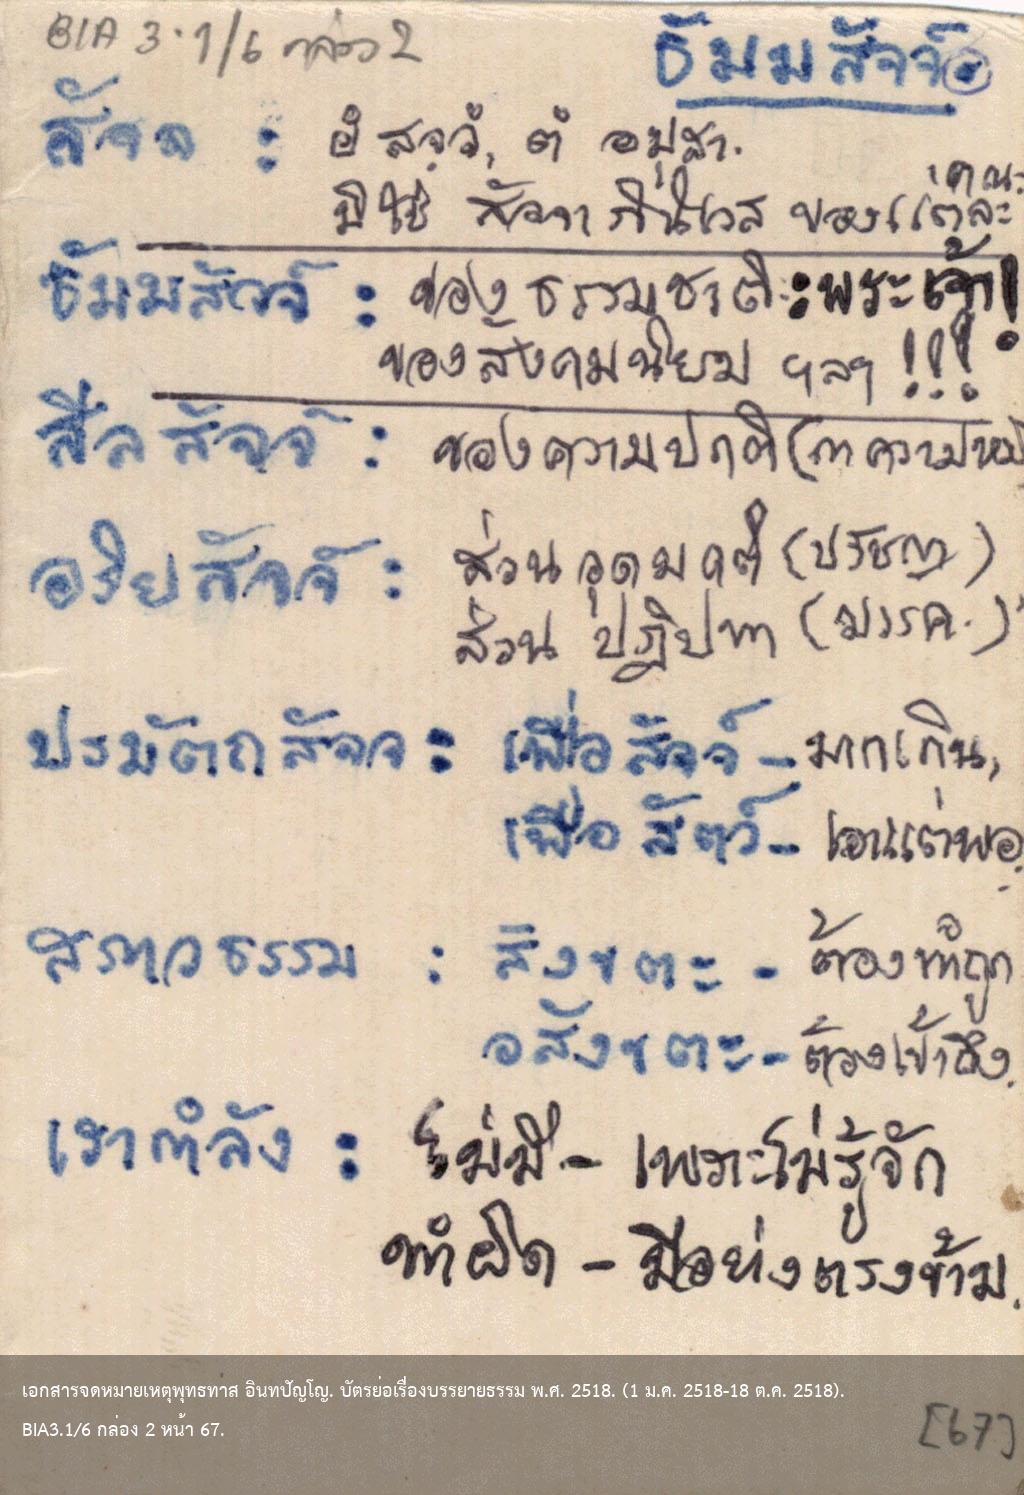 BIA 3.1/6 กล่อง 2
ธัมมสัจจ์ ๑
สัจจ : ยํ สจฺจํ, ตํ อมุสา.
มิใช่ สัจจาภินิเวส ของแต่ละคณะ
ธัมมสัจจ์ : ของธรรมชาติ:พระเจ้า!
ของสังคมนิยม ฯลฯ !!!
สีลสัจจ์ : ของความปกติ (ตาความหม
อริยสัจจ์ : ส่วนอุดมคติ (ปรัชญา)
ส่วน ปฏิปทา (มรรค.)
ปรมัตถสัจจ : เพื่อสัจจ์ - มากเกิน,
เพื่อ สัตว์ - เอาแต่พอ.
สภาวธรรม : สังขตะ - ต้องทำถูก
อสังขตะ - ต้องเข้าถึง.
เรากำลัง : ไม่มี - เพราะไม่รู้จัก
ทำผิด - มีอย่างตรงข้าม.
เอกสารจดหมายเหตุพุทธทาส อินทปัญโญ. บัตรย่อเรื่องบรรยายธรรม พ.ศ. 2518. (1 ม.ค. 2518-18 ต.ค. 2518).
BIA3.1/6 กล่อง 2 หน้า 67.
[67]